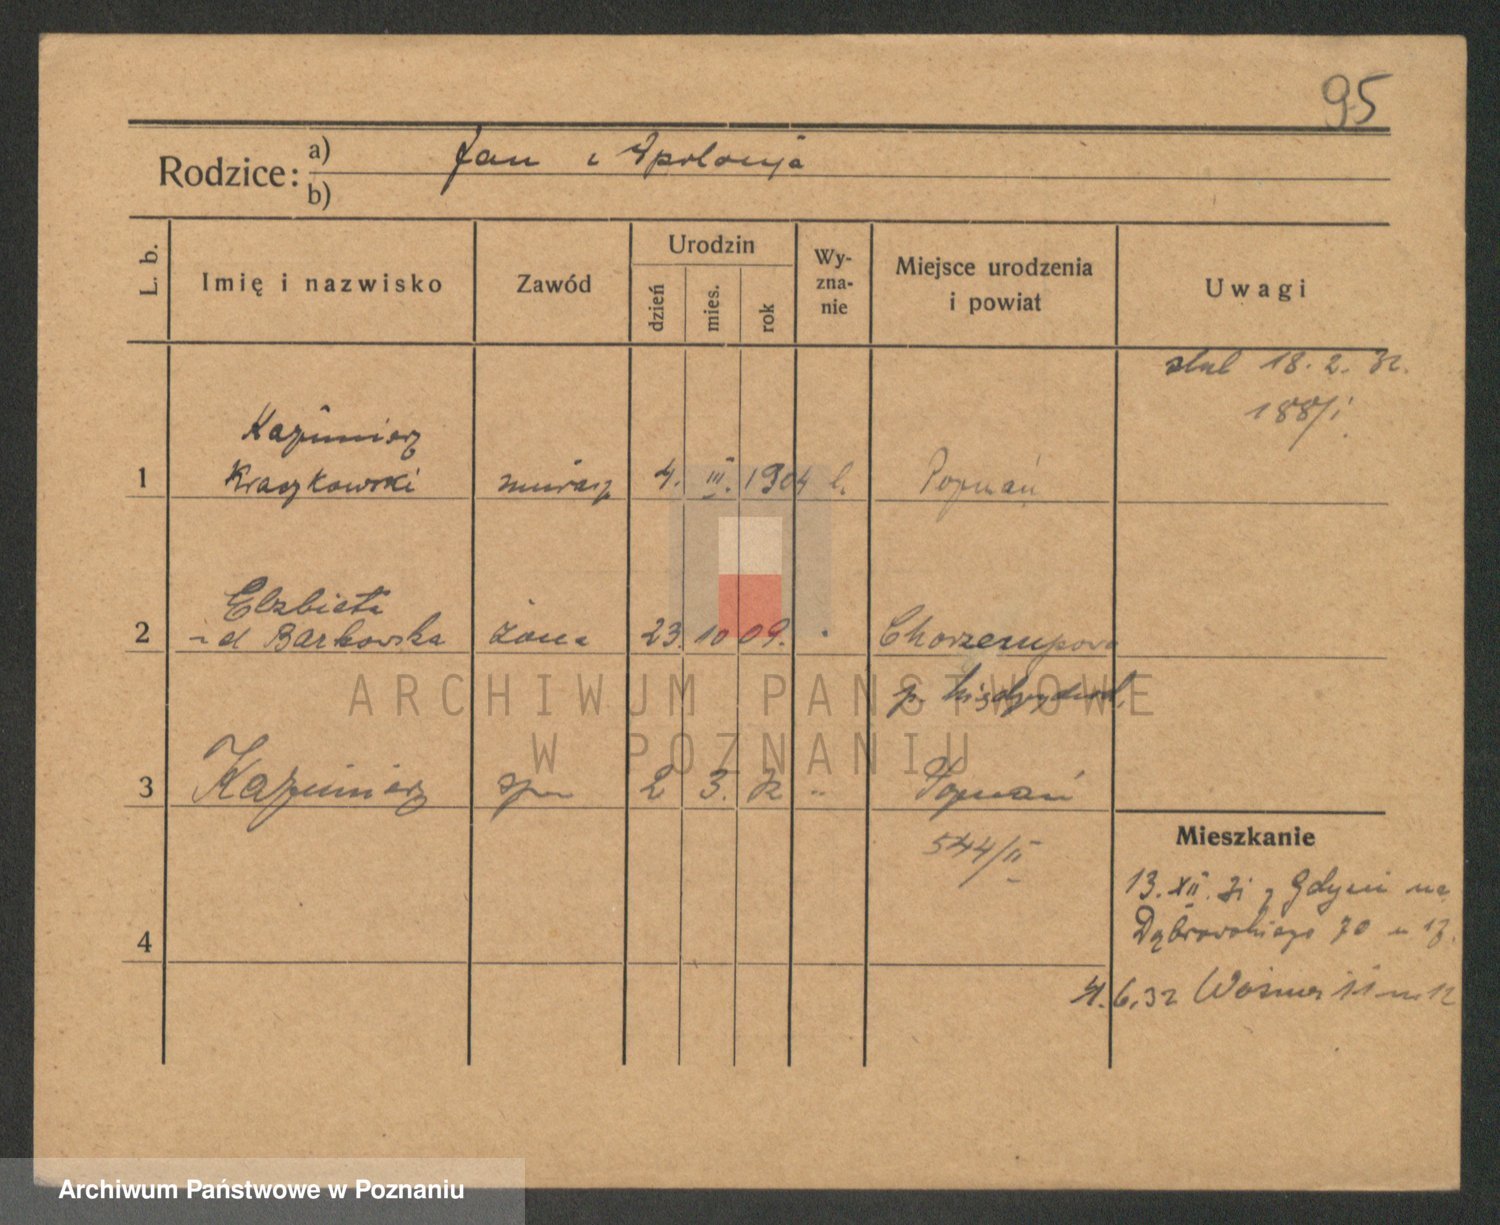 95
Rodzice: a) Jan i Apolonja
b)
L. b.
Imię i nazwisko
Zawód
Urodzin
dzień
mies.
rok
Wy-
zna-
nie
Miejsce urodzenia
i powiat
Uwagi
ślub 18. 2. 32.
188/I
Kazimierz
1 Kraszkowski murarz 4. III. 1904 k. Poznań
Elzbieta
2 z d Barkowska żona 23. 10 09. "
p. Międzychód,
3 Kazimierz syn 2 3. 32 " Poznań
544/II
Mieszkanie
13. XII. 31 z Gdyni na
Dąbrowskiego 70 m 13.
4
4. 6. 32 11 m 12
ARCHIWUM PAŃSTWOWE
W POZNANIU
Archiwum Państwowe w Poznaniu